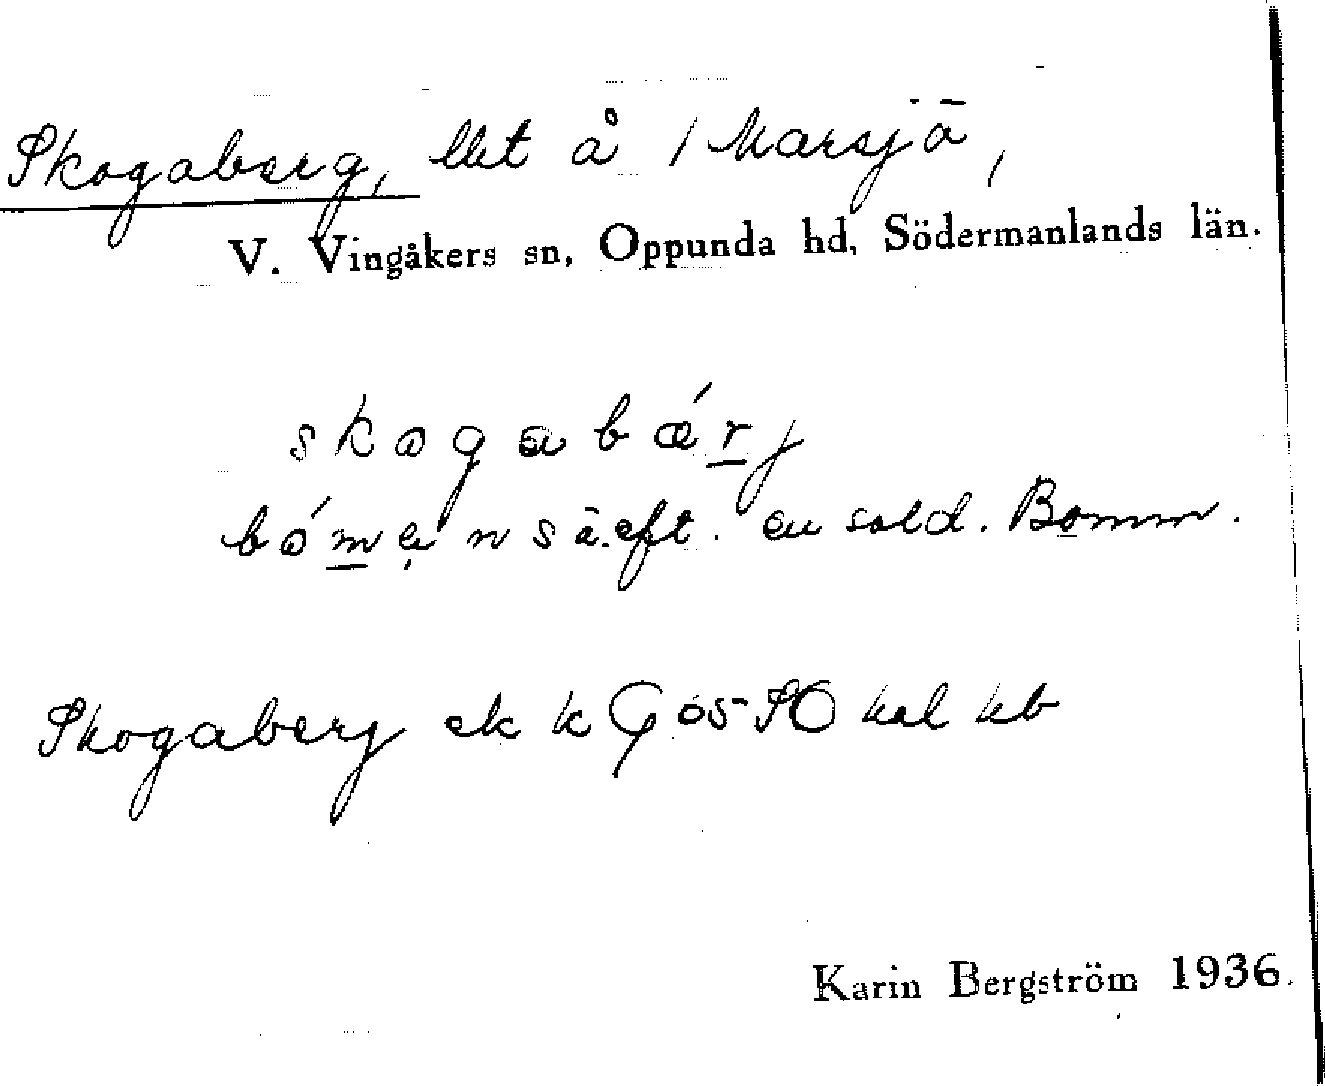 Skogaberg, lht å 1 Marsjö,
V. Vingåkers sn, Oppunda hd, Södermanlands län.
skogabærj
bómans ä. eft. en sold. Bomm.
Skogaberg ek k G 65 SO kal kb
Karin Bergström 1936.